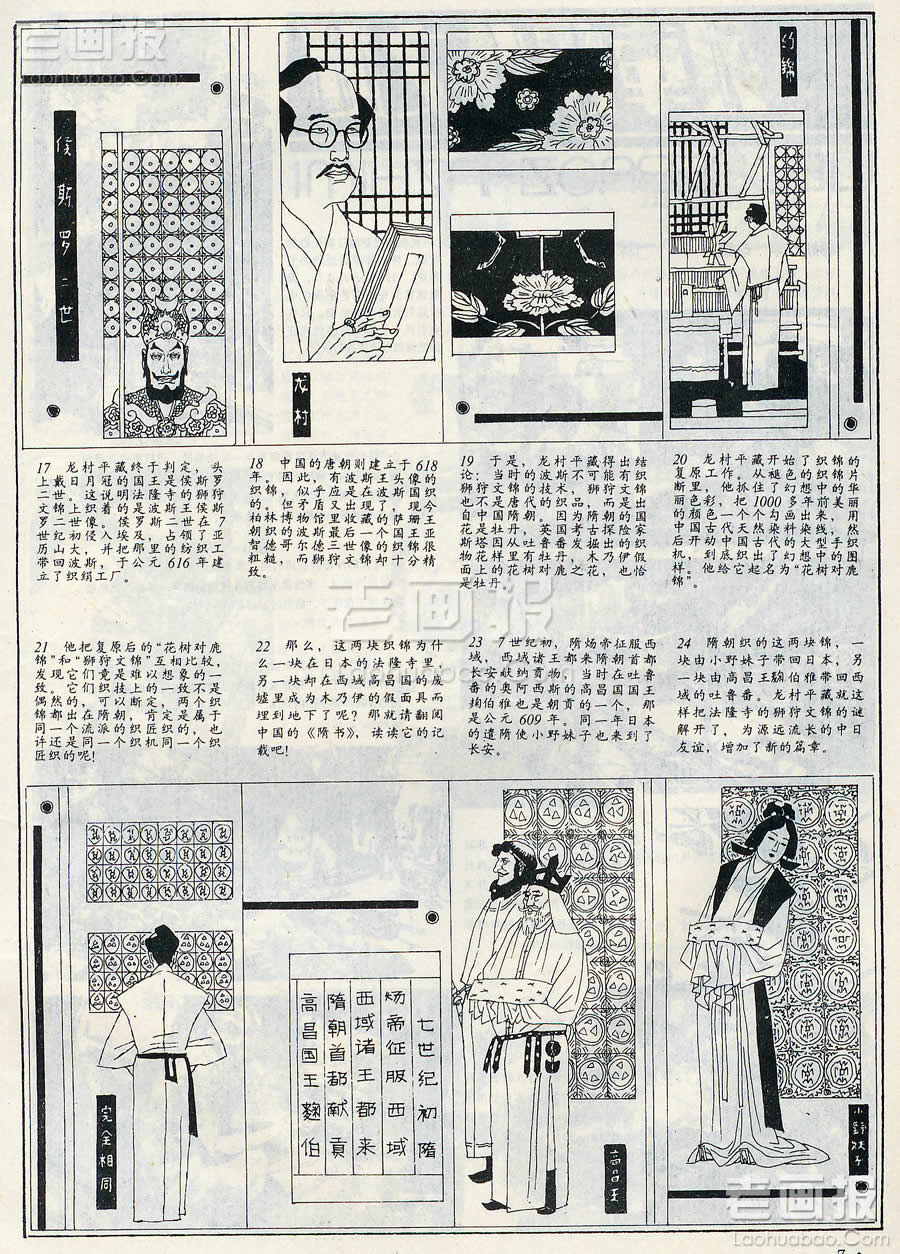 老画报
Laohuabao.Com
侯斯罗二世
龙村
约锦
17 龙村平藏终于判定，头
上戴日月冠的国王是侯斯罗
二世。这说明法隆寺的狮狩
文锦上织着的是波斯王侯斯
罗二世像。侯罗斯二世在7
世纪初侵入埃及，占领了亚
历山大，并把那里的纺织工
带回波斯，于公元616年建
立了织绢工厂。
18 中国的唐朝则建立于618
年。因此，有波斯王头像的
织锦，似乎应是在波斯国织
的。但矛盾又出现了，现今
柏林博物馆里收藏的萨珊王
朝织的波斯最后一个国王亚
智德哥尔德三世像的织锦很
粗糙，而狮狩文锦却十分精
致。
19 于是，龙村平藏得出结
论：当时的波斯不可能有织
狮狩文锦的技术，狮狩文锦
也不是唐代的织品，而是出
自中国隋朝。因为隋朝的国
花是牡丹，英国考古探险家
斯塔因从吐鲁番发掘出的织
物花样里有牡丹，木乃伊假
面上的花树对鹿之花，也恰
是牡丹。
20 龙村平藏开始了织锦的
复原工作。从褪色的织锦片
断里，他抓住了幻想中的华
丽色彩，把1000多年前美丽
的颜色一个个勾画出来，用
中国古代天然染料染线，然
后开动中国古代的大型手织
机，到底织出了幻想中的图
样。他给它起名为“花树对鹿
锦”。
21 他把复原后的“花树对鹿
锦”和“狮狩文锦”互相比较，
发现它们竟是难以想象的一
致。它们织技上的一致不是
偶然的，可以断定，两个织
锦都出在隋朝，肯定是属于
同一个流派的织匠织的，也
许还是同一个织机同一个织
匠织的呢！
22 那么，这两块织锦为什
么一块在日本的法隆寺里，
另一块却在西域高昌国的废
墟里成为木乃伊的假面具而
埋到地下了呢？那就请翻阅
中国的《隋书》，读读它的记
载吧！
23 7世纪初，隋炀帝征服西
域，西域诸王都来隋朝首都
长安献纳贡物，当时在吐鲁
番的奥阿西斯的高昌国国王
麹伯雅也是朝贡的一个，那
是公元609年。同一年日本
的遣隋使小野妹子也来到了
长安。
24 隋朝织的这两块锦，一
块由小野妹子带回日本，另
一块由高昌王麹伯雅带回西
域的吐鲁番，龙村平藏就这
样把法隆寺的狮狩文锦的谜
解开了，为源远流长的中日
友谊，增加了新的篇章。
老画报
完全相同
七世纪初隋
炀帝征服西域
西域诸王都来
隋朝首都献贡
高昌国王麹伯
高昌王
小野妹子
老画报
Laohuabao.Com
7